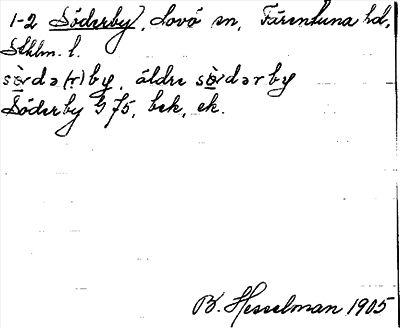 1-2 Söderby, Lovö sn, Färentuna hd,
Sthlm. l.
sö̀rdə(r)by, äldre sö̀rdərby
Söderby G 75, bek, ek.
B. Hesselman 1905